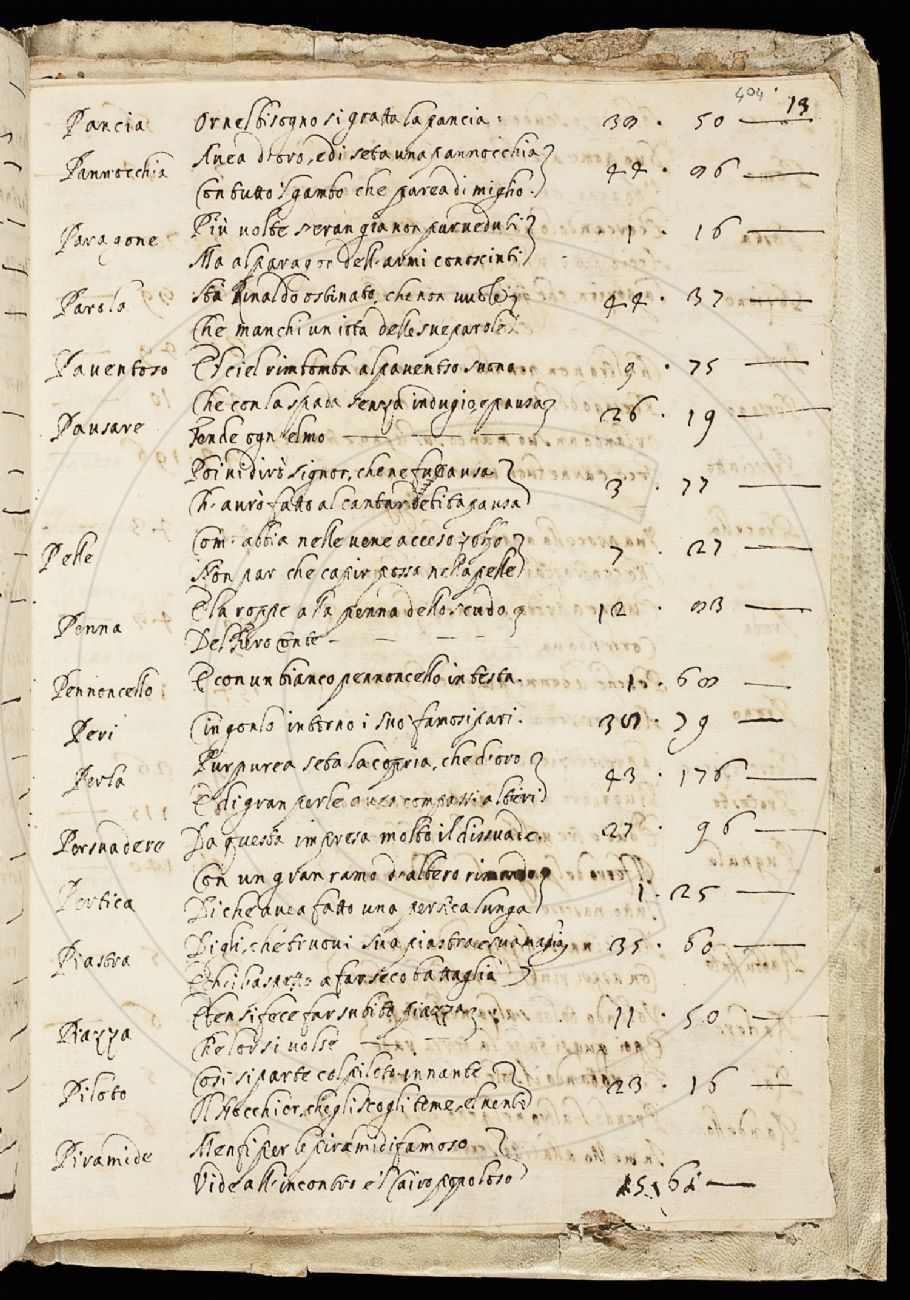 404
13
Pancia Or nel bisogno si gratta la pancia. 38 · 50
Pannocchia Auea d'oro, e di seta una pannocchia 44 · 96
Con tutto 'l gambo che parea di miglio.
Paragone Più uolte s'eran gia non pur ueduti 1 · 16
Ma al paragon dell'armi conosciuti
Parola Sta Rinaldo ostinato, che non uuole 44 · 37
Che manchi un iota delle sue parole
Pauentoso E 'l ciel rimbomba al pauentoso suono. 9 · 75
Pausare Che con la spada senza indugio, e pausa 26 · 19
Fende ogn'elmo
Poi ui dirò signor, che ne fu causa 3 · 77
Ch'aurò fatto al cantar debita pausa
Pelle Com'abbia nelle uene acceso zolfo 7 · 27
Non par che capir possa nella pelle
Penna E la roppe a la penna dello scudo 12 · 83
Del fiero Conte
Pennoncello E con un bianco pennoncello in testa. 1 · 60
Peri Cingonlo intorno i suo' famosi pari. 38 · 79
Perla Purpurea seta la copria, che d'oro 43 · 176
E di gran perle auea compassi altieri
Persuadere Da questa impresa molto il dissuade. 27 · 96
Pertica Con un gran ramo d'albero rimondo 1 · 25
Di che auea fatto una pertica lunga
Piastra Digli, che truoui sua piastra, e sua maglia 35 · 60
E ch'i l'aspetto a far seco battaglia
Piazza E ben si fece far subito piazza 11 · 50
Che lor si uolse
Piloto Così si parte col piloto innante 23 · 16
Il Nocchier, che gli scogli teme, e 'l uento
Piramide Menfi per le piramidi famoso
Vide all'incontro e 'l Cairo popoloso 15 · 61